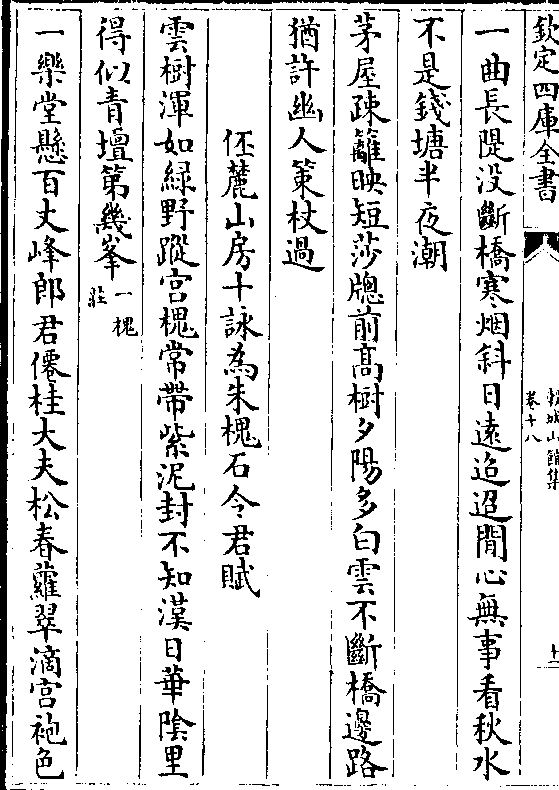 欽定四庫全書
穀城山館集
卷十八
十二
一曲長隄没斷橋寒烟斜日遠迢迢閒心無事看秋水
不是錢塘半夜潮
茅屋疎籬映短莎牎前髙樹夕陽多白雲不斷橋邊路
猶許幽人策杖過
伾麓山房十詠為朱槐石令君賦
雲樹渾如緑野蹤宫槐常帶紫泥封不知漢日華陰里
得似青壇第幾峯一槐莊
一樂堂懸百丈峰郎君僊桂大夫松春蘿翠滴宫袍色